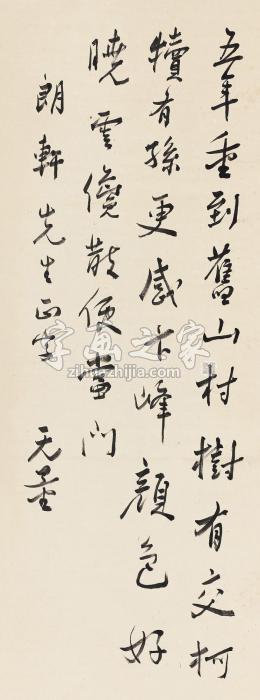 五年重到舊山村樹有交柯
犢有孫更感卞峰顏色好
曉雲纔散便當門
朗軒先生正
无量
字画之家
zihuazhijia.com